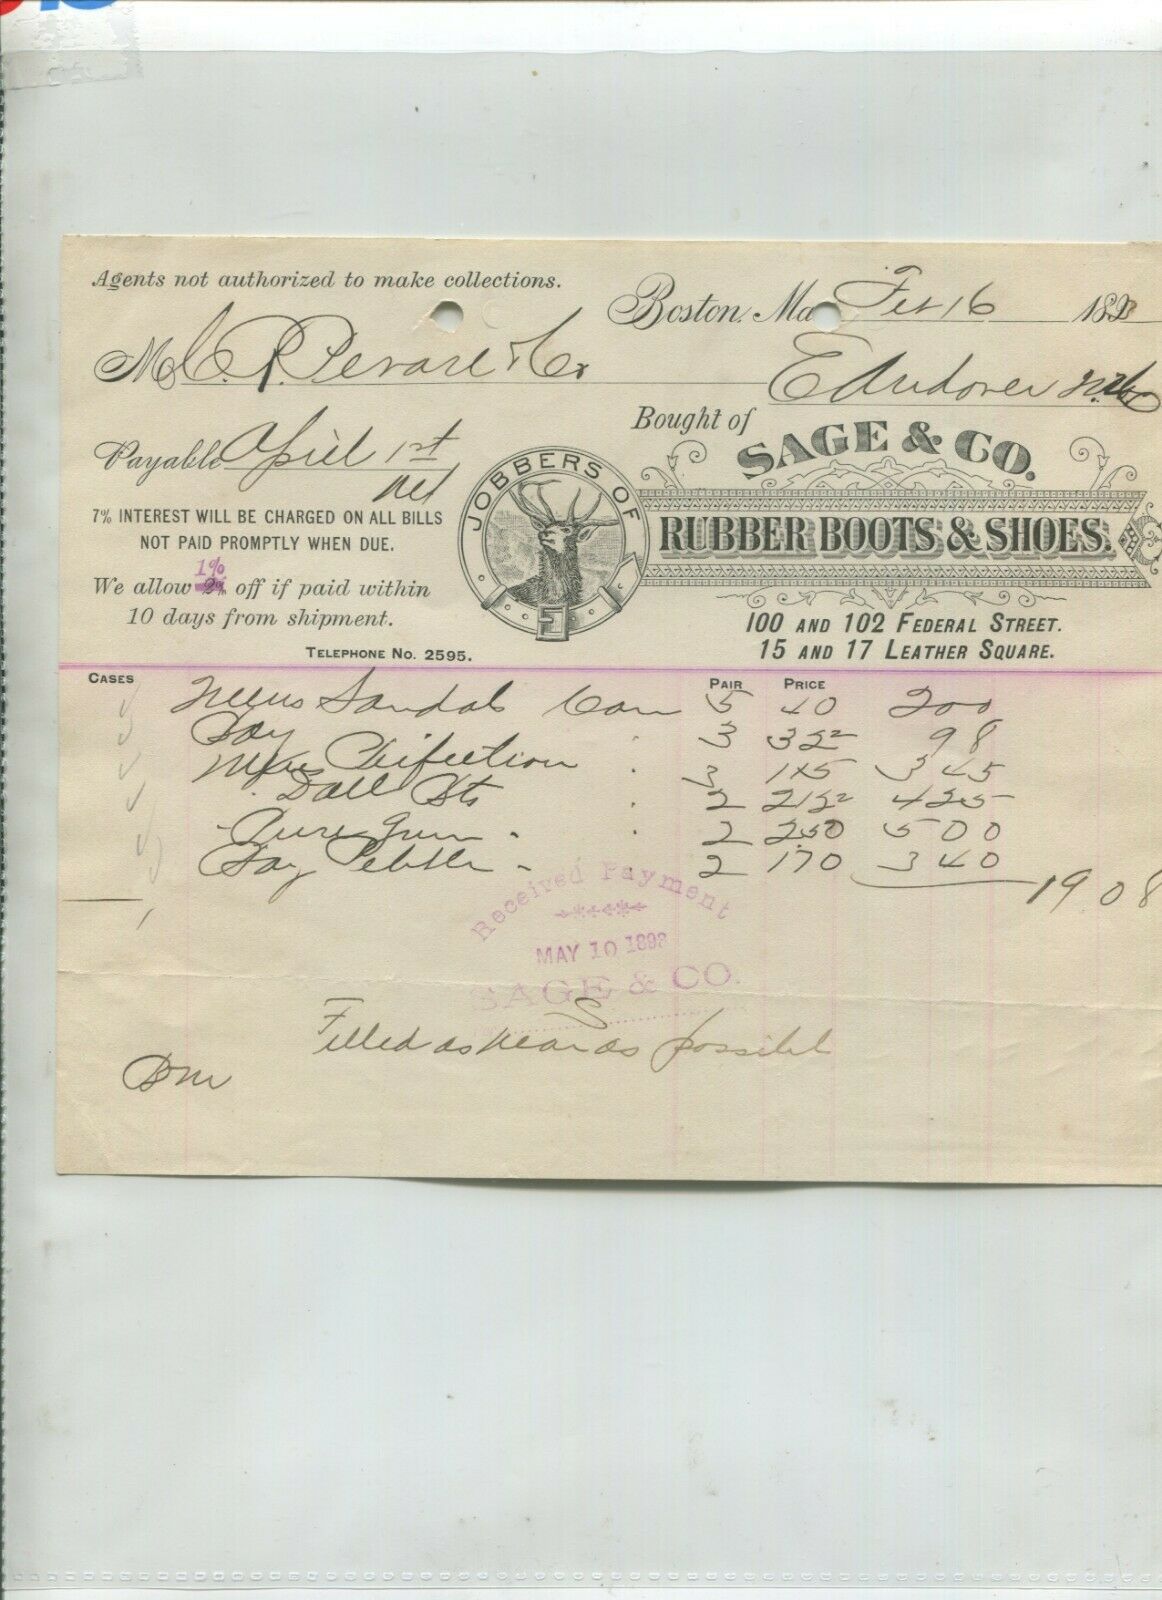 Agents not authorized to make collections.
Boston, Ma Feb 16 189
M C. R. Pevare & Co
E Andover N.H.
Bought of
SAGE & CO.
Payable April 1st
net
JOBBERS OF
RUBBER BOOTS & SHOES.
7% INTEREST WILL BE CHARGED ON ALL BILLS
NOT PAID PROMPTLY WHEN DUE.
1%
We allow 2% off if paid within
10 days from shipment.
100 AND 102 FEDERAL STREET.
15 AND 17 LEATHER SQUARE.
TELEPHONE NO. 2595.
CASES PAIR PRICE
Mens Sandals Con 5 40 200
Boy 3 32½ 98
Mens Perfection 3 115 345
Dull Bts 2 212½ 425
Pure Gum 2 250 500
Boy Pebble 2 170 340
19.08
Received Payment
MAY 10 1898
SAGE & CO.
Filled as near as possible